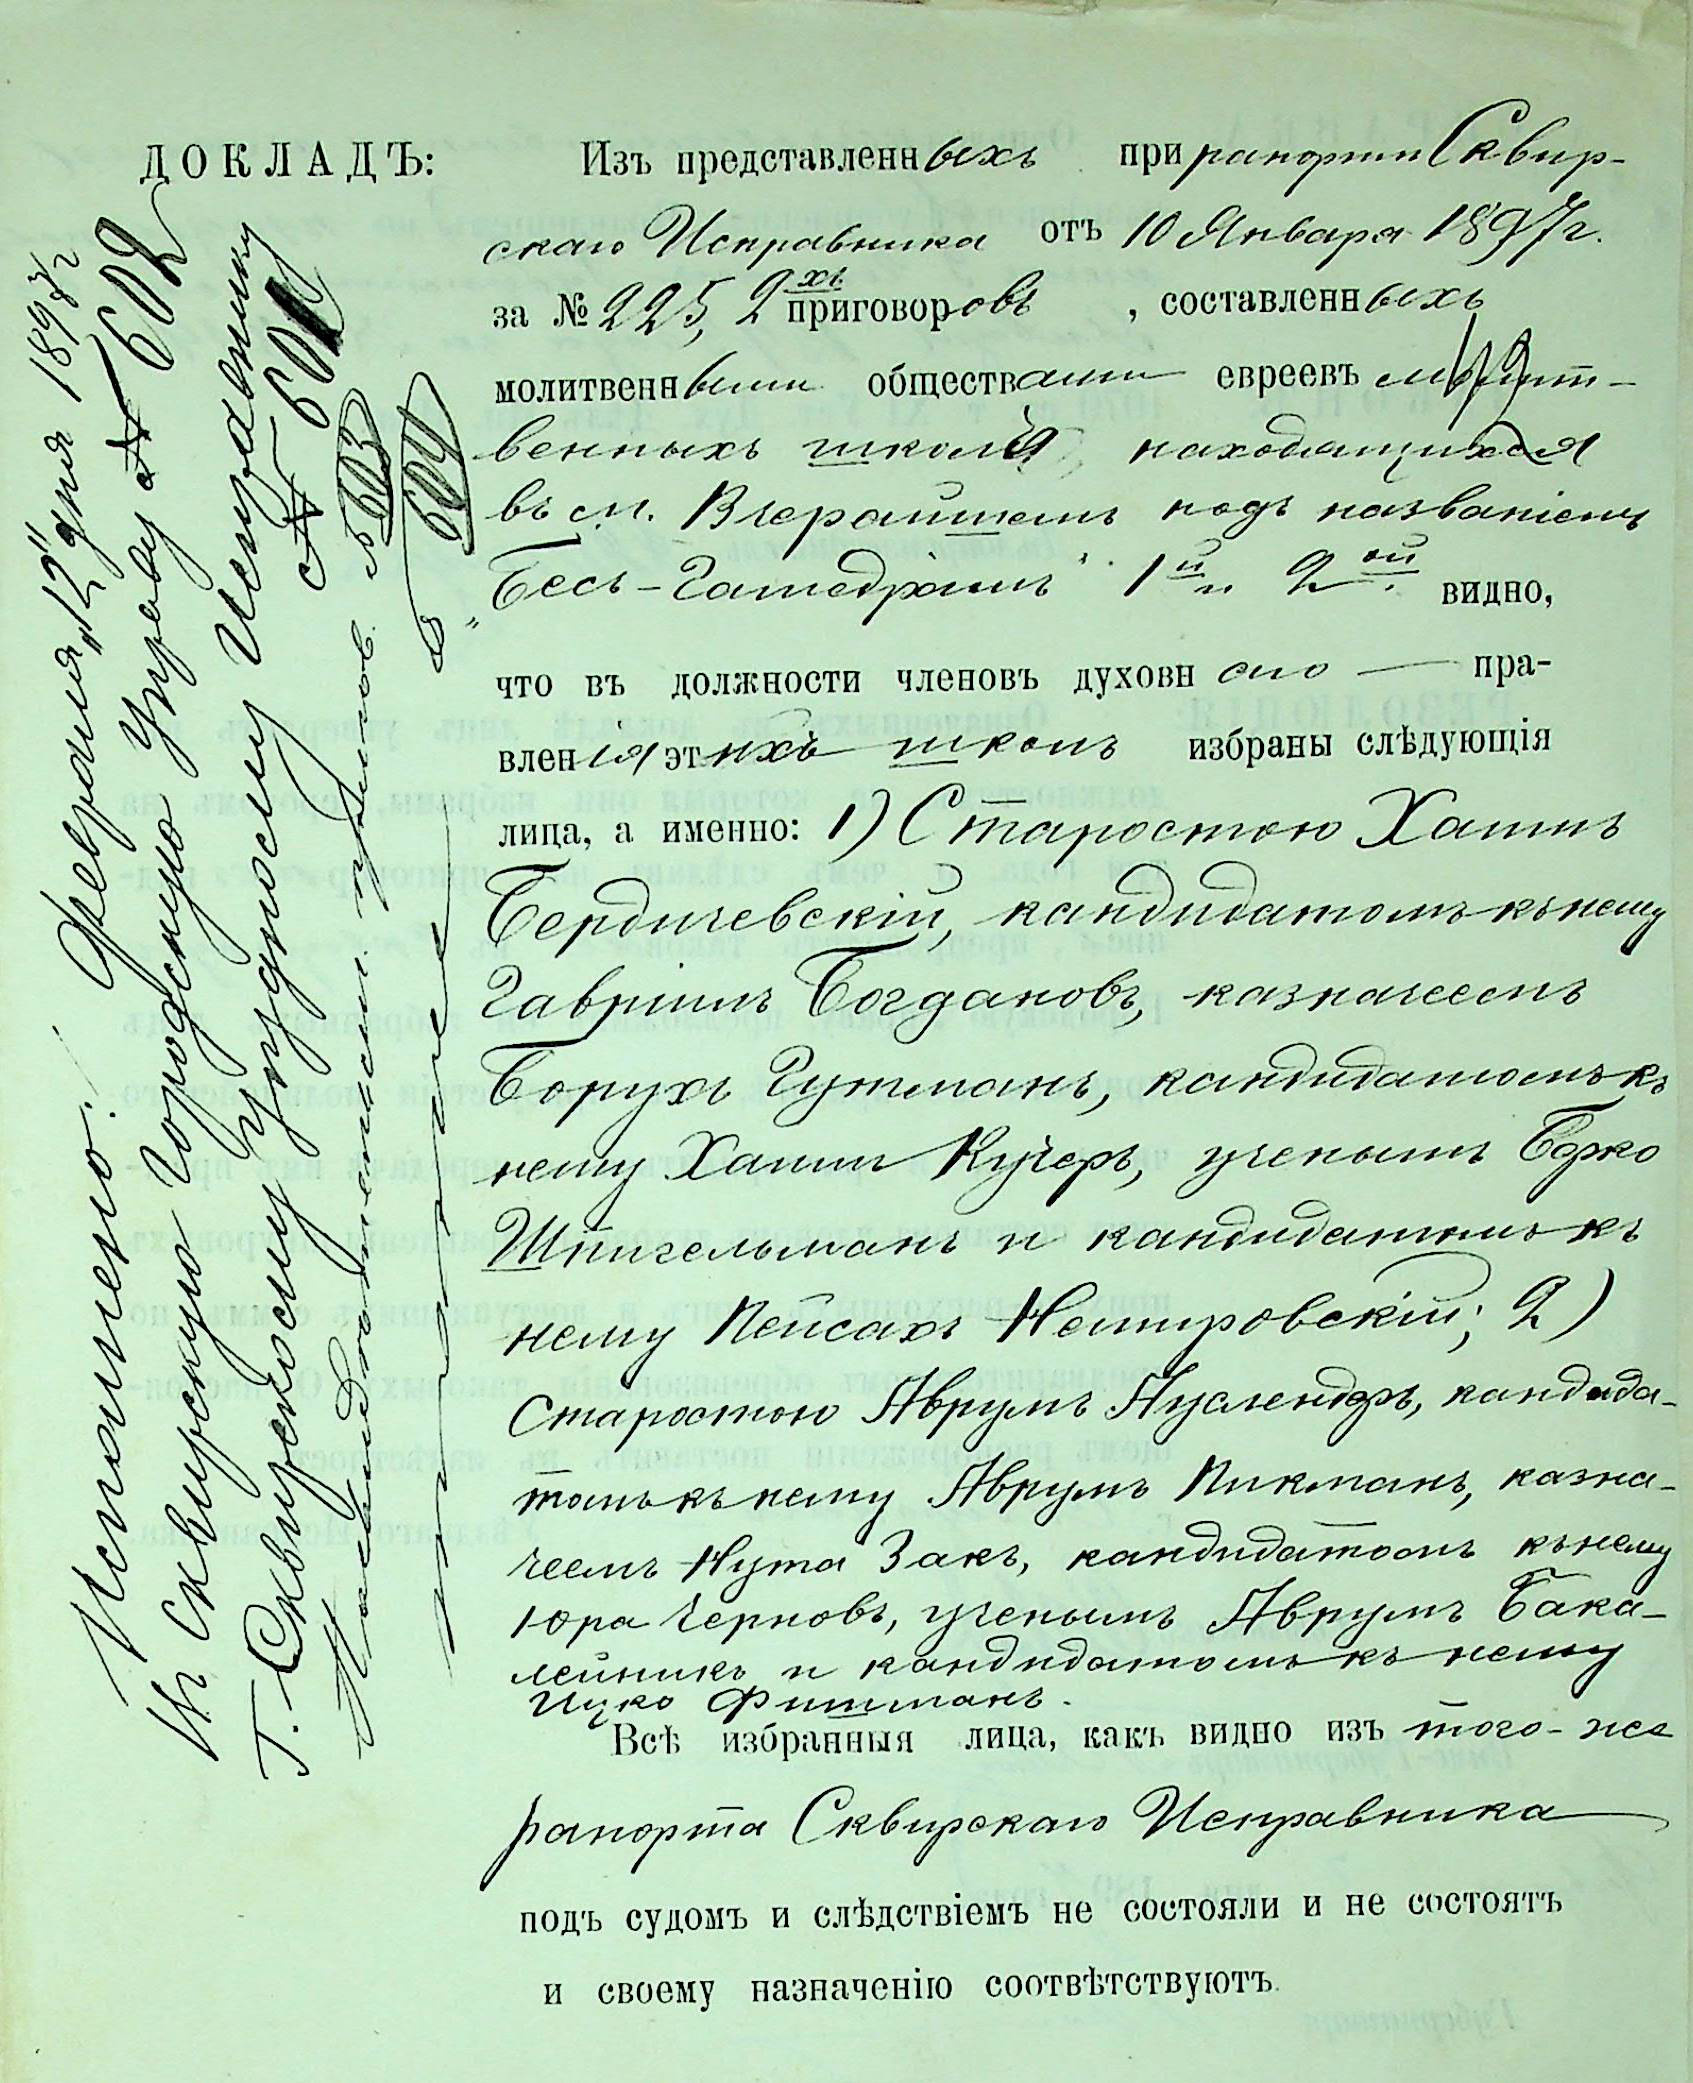 ДОКЛАДЪ:
Изъ представленныхъ при рапортѣ Сквир-
скаго Исправника отъ 10 Января 1897 г.
за № 225, 2хъ приговоровъ, составленныхъ
молитвенными обществами евреевъ молит-
венныхъ школъ, находящихся
въ м. Вчерайшемъ подъ названіемъ
„Бесъ-Гамедрашъ" 1й и 2ой видно,
что въ должности членовъ духовнаго — пра-
вленія этихъ школъ избраны слѣдующія
лица, а именно: 1) Старостою Хаимъ
Бердичевскій, кандидатомъ къ нему
Гавріилъ Богдановъ, казначеемъ
Борухъ Гутманъ, кандидатомъ къ
нему Хаимъ Кучеръ, ученымъ Борко
Шпигельманъ и кандидатомъ къ
нему Пейсахъ Немировскій; 2)
Старостою Аврумъ Нуслендеръ, кандида-
томъ къ нему Аврумъ Пикманъ, казна-
чеемъ Нута Закъ, кандидатомъ къ нему
Юра Черновъ, ученымъ Аврумъ Бака-
лейникъ и кандидатомъ къ нему
Ицко Фишманъ.
Всѣ избранныя лица, какъ видно изъ того-же
рапорта Сквирскаго Исправника
подъ судомъ и слѣдствіемъ не состояли и не состоятъ
и своему назначенію соотвѣтствуютъ.
Исполнено: Февраля „12" дня 1897 г.
Въ Сквирскую Городскую Управу № 602
Г. Сквирскому Уѣздному Исправнику
№ 601
№ 603
604